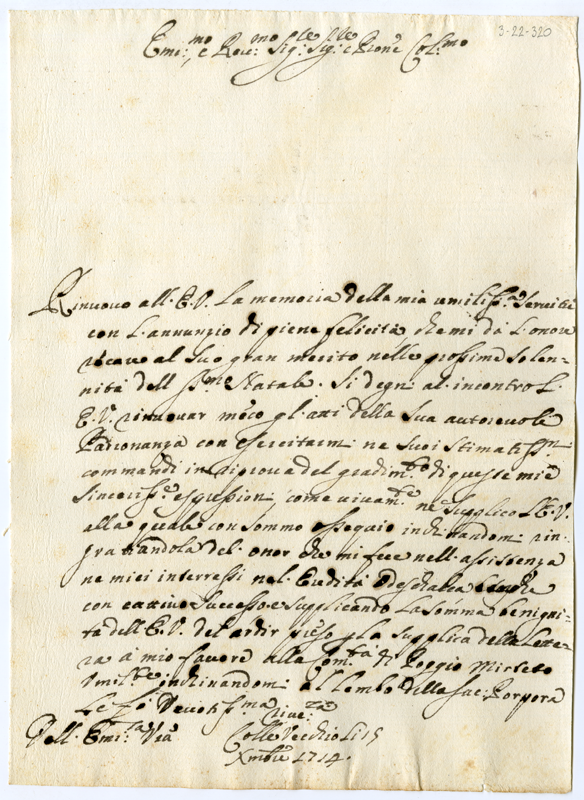 3-22-320
Emi:mo e Rev:mo Sig:re Sig:re e Pron'e Col:mo
Rinuovo all'E.V. la memoria della mia umiliss:a Servitù
con l'annunzio di piene felicità che mi dà l'onore
al suo gran merito nelle prossime solen-
nità dell S:mo Natale. Si degni al incontro L.
E.V. rinuovar meco gl'atti della sua autorevole
Padronanza con esercitarmi ne suoi stimatiss:mi
commandi in riprova del gradim:to di queste mie
sinceriss:e espressioni come vivam:te ne supplico l'E.V.
alla quale con sommo ossequio inchinandomi rin-
gratiandola del onor che mi fece nell'assistenza
ne miei interessi nel Eredità
con cattivo successo e supplicando la somma benigni-
tà dell'E.V. del ardir preso p la supplica della Lette-
ra à mio favore alla Com:tà di Poggio Mirteto
Umil:te inchinandomi al lembo della sac: Porpora
le fò devotissima river:za
Dell'Emi:za V'ra
Colle Vecchio li 15
Xmbre 1714.